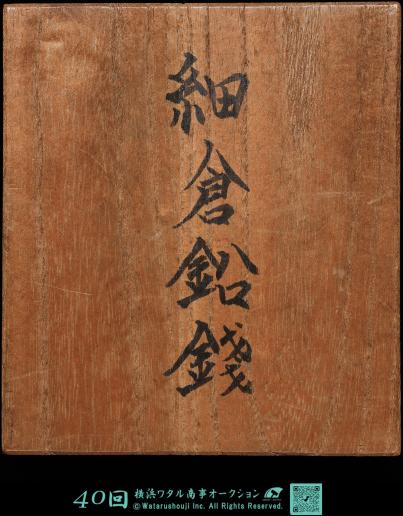 細倉鉛錢
40回 横浜ワタル商事オークション
©Watarushouji Inc. All Rights Reserved.